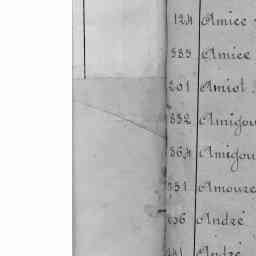 124 Amice
583 Amice
201 Amiot
832 Amigou
864 Amigou
551 Amoure
André
André